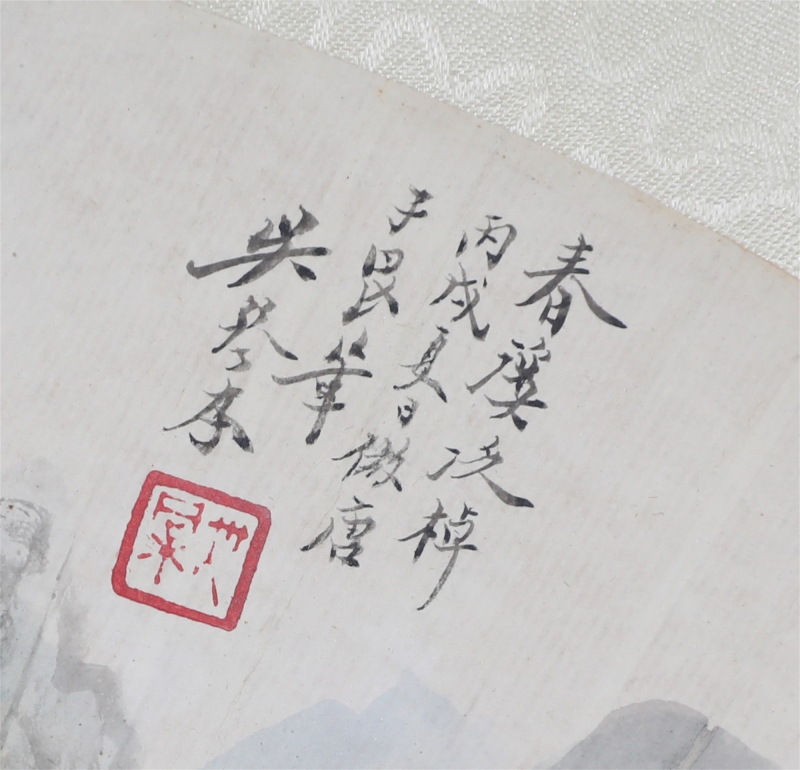 春溪泛棹
丙戌夏日倣唐
子畏筆
吳琴木